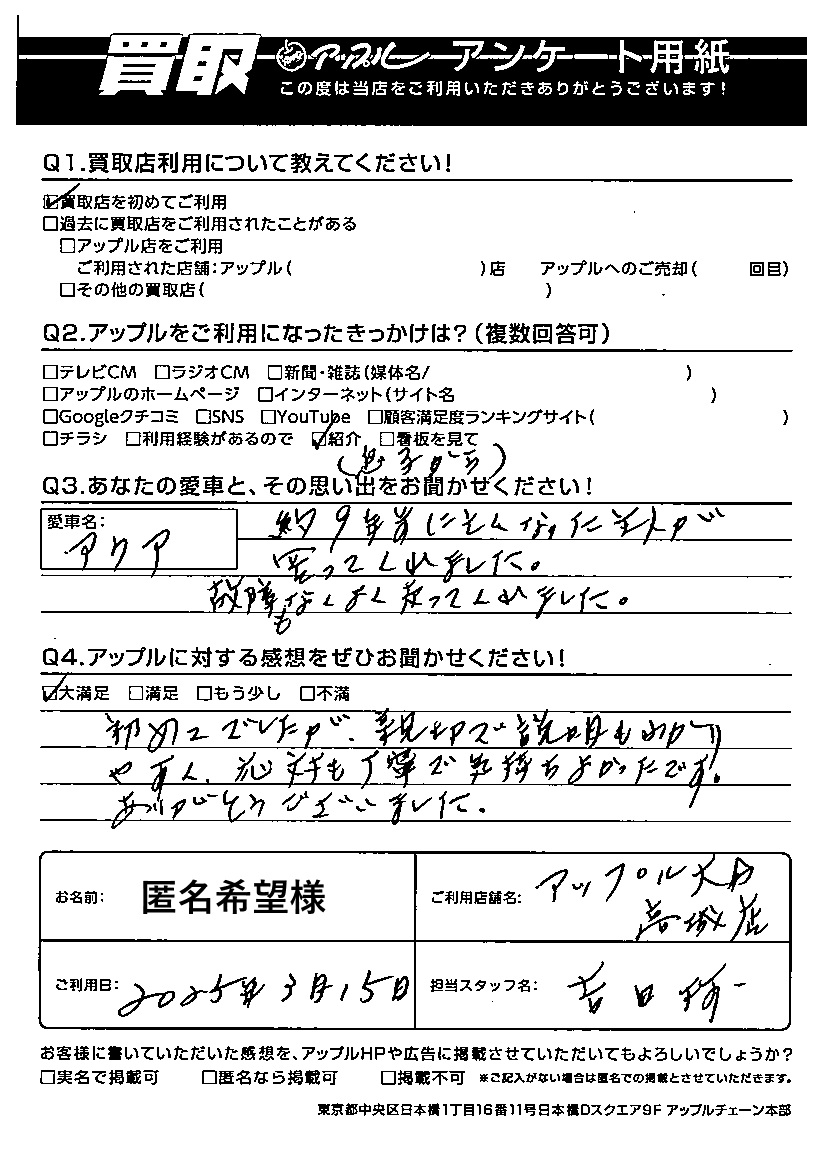 買取 アップル アンケート用紙
この度は当店をご利用いただきありがとうございます!
Q1.買取店利用について教えてください!
☑買取店を初めてご利用
□過去に買取店をご利用されたことがある
□アップル店をご利用
ご利用された店舗:アップル( )店 アップルへのご売却( 回目)
□その他の買取店( )
Q2.アップルをご利用になったきっかけは?(複数回答可)
□テレビCM □ラジオCM □新聞・雑誌(媒体名/ )
□アップルのホームページ □インターネット(サイト名 )
□Googleクチコミ □SNS □YouTube □顧客満足度ランキングサイト( )
□チラシ □利用経験があるので ☑紹介 □看板を見て
(息子から)
Q3.あなたの愛車と、その思い出をお聞かせください!
愛車名:
アクア
約9年前に
買ってくれました。
故障もなくよく走ってくれました。
Q4.アップルに対する感想をぜひお聞かせください!
☑大満足 □満足 □もう少し □不満
初めてでしたが、親切で説明もわかり
やすく、応対も丁寧で気持ちよかったです。
ありがとうございました。
お名前: 匿名希望様
ご利用店舗名: アップル大臼
高城店
ご利用日: 2025年3月15日
担当スタッフ名: 吉田
お客様に書いていただいた感想を、アップルHPや広告に掲載させていただいてもよろしいでしょうか?
□実名で掲載可 □匿名なら掲載可 □掲載不可 ※ご記入がない場合は匿名での掲載とさせていただきます。
東京都中央区日本橋1丁目16番11号日本橋Dスクエア9F アップルチェーン本部